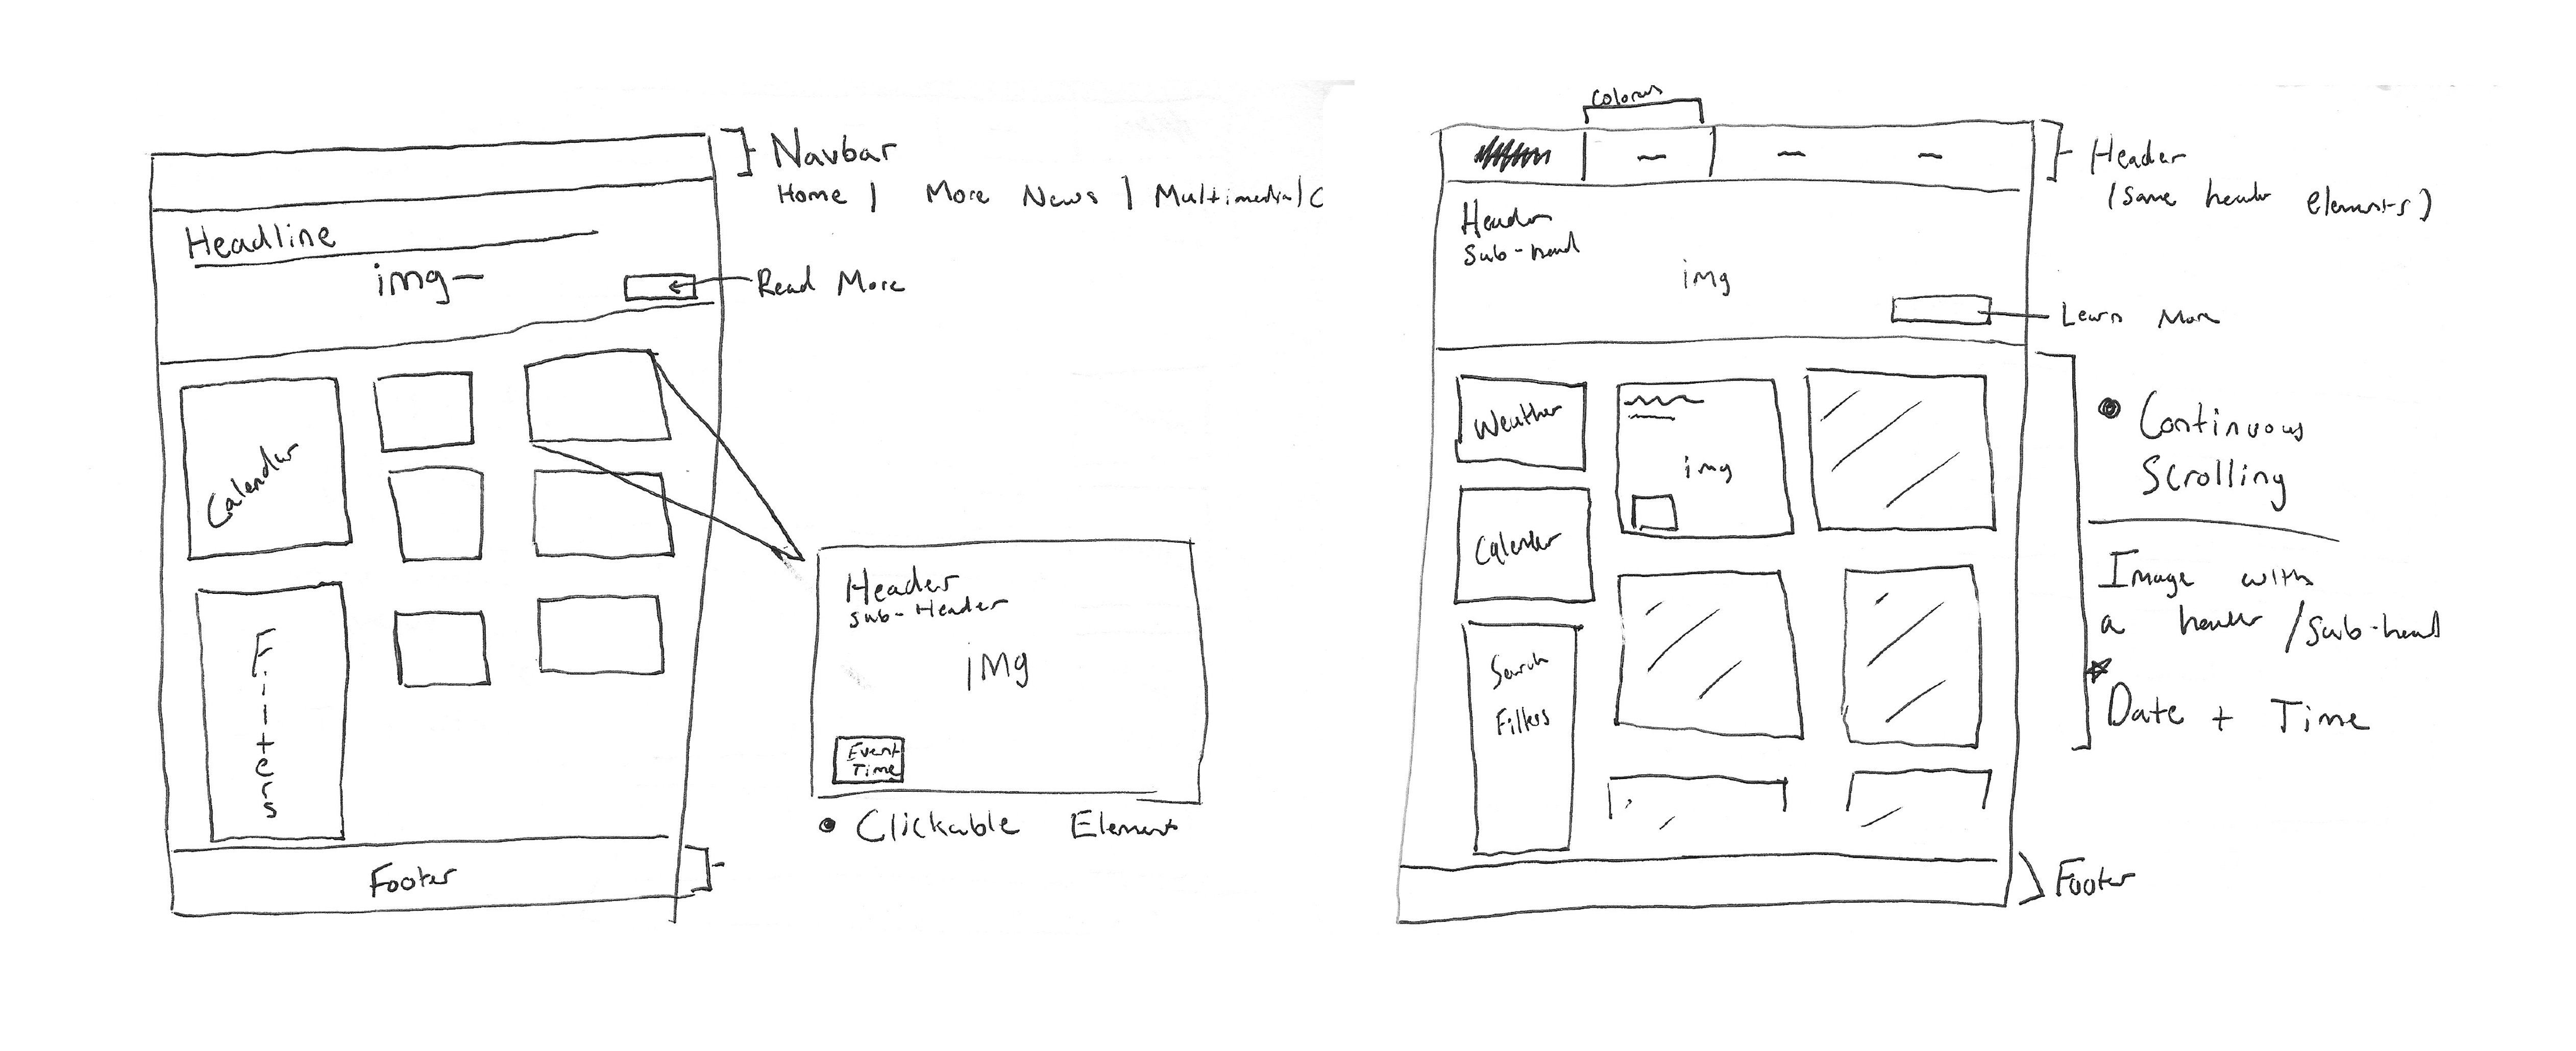 Navbar
Home | More News | Multimedia | C
Headline
img
Read More
Calendar
Filters
Header
Sub-Header
img
Event
Time
Clickable Element
Footer
Colorus
Header
(Same header elements)
Header
Sub-head
img
Learn More
Weather
img
Calender
Search
Filters
Continuous
Scrolling
Image with
a header /Sub-head
Date + Time
Footer